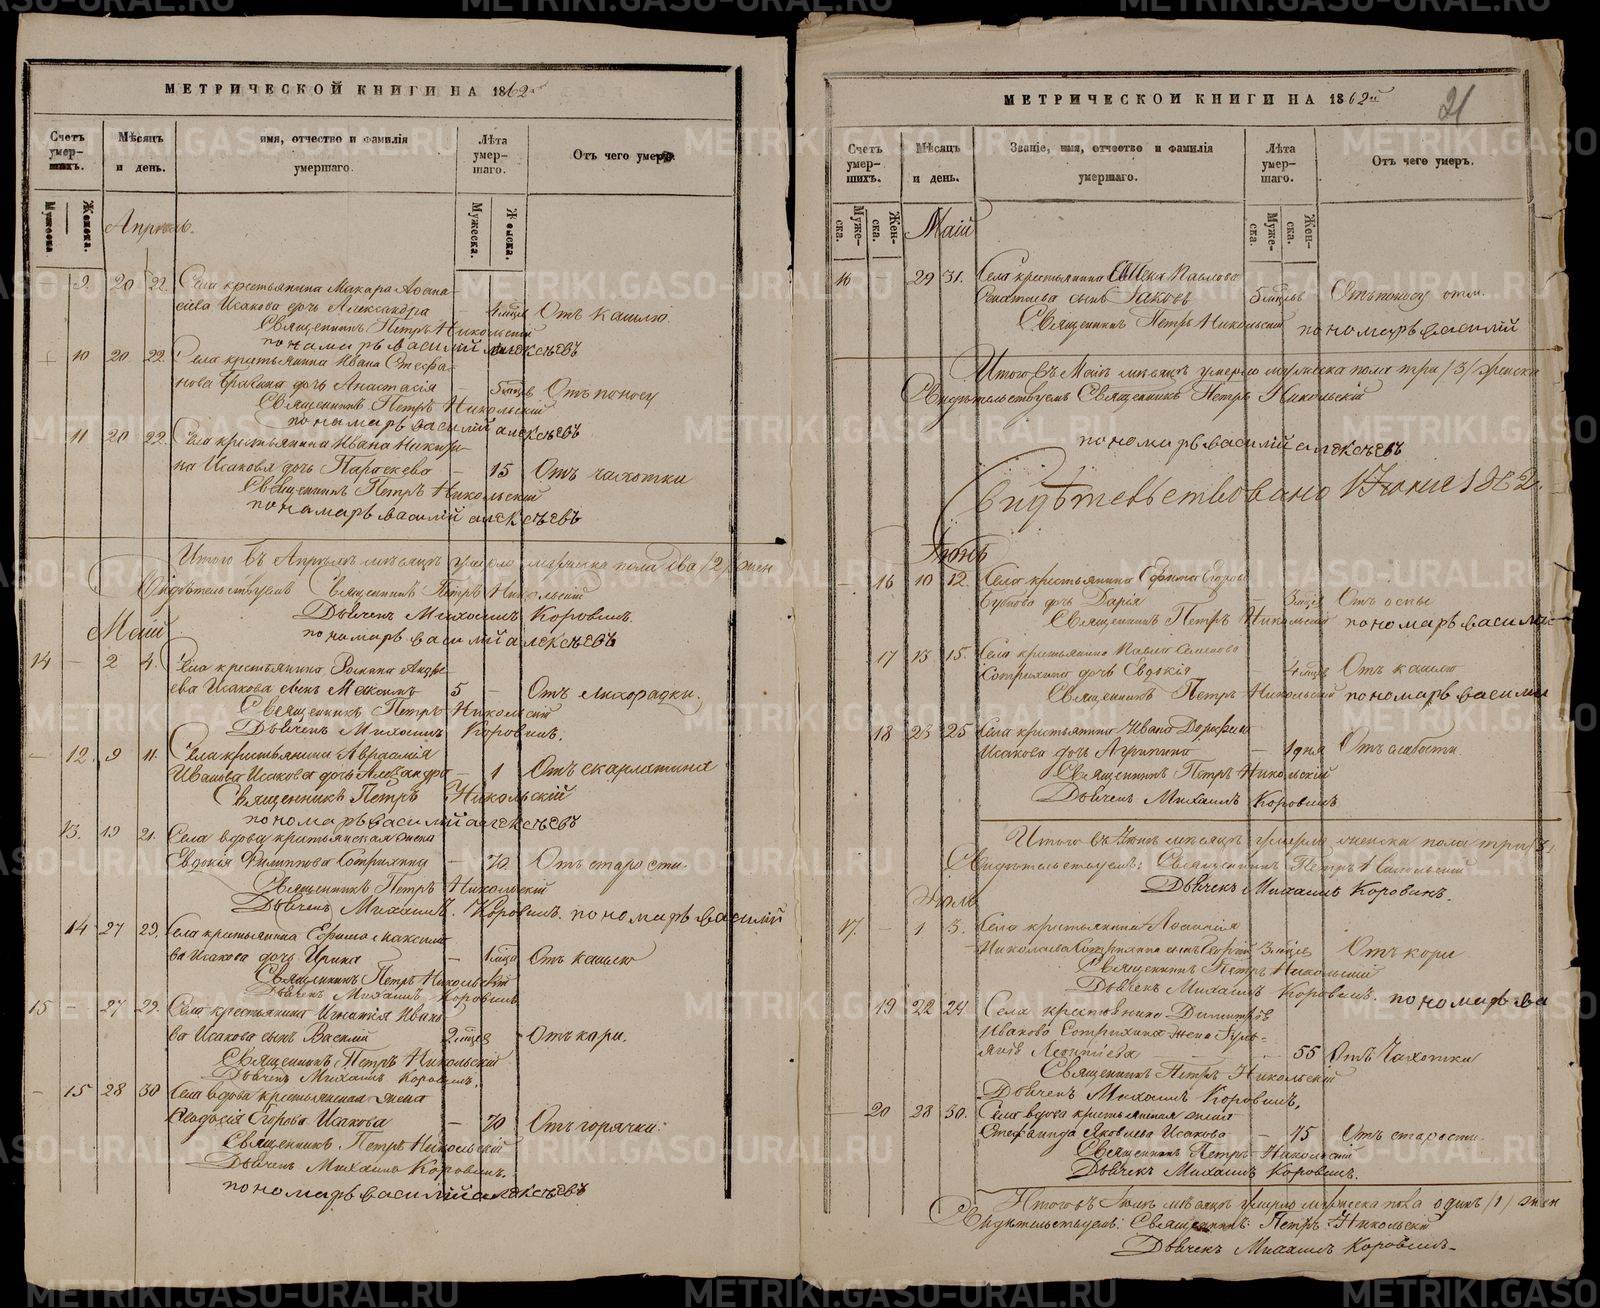 МЕТРИЧЕСКОЙ КНИГИ НА 1862
Счетъ умер-шихъ.
Мѣсяцъ и день.
имя, отчество и фамилія умершаго.
Лѣта умер-шаго.
Отъ чего умеръ.
Мужеска
Женска.
Мужеска.
Женска.
Апрѣль.
9. 20 22. Села крестьянина Макара Аѳана-
сіева Исакова дочь Александра — 4 мѣсц Отъ кашлю
Священникъ Петръ Никольскій
пономарь василій алексѣевъ
10 20 22. Села крестьянина Ивана Стефа-
нова дочь Анастасія — 5 мѣсцв Отъ поносу
Священникъ Петръ Никольскій
пономарь василій алексѣевъ
11 20 22. Села крестьянина Ивана
на Исакова дочь Параскева — 15 Отъ чахотки
Священникъ Петръ Никольскій
пономарь василій алексѣевъ
Итого въ Апрѣлѣ мѣсяцѣ умерло мужеска пола два /2/ жен
Свидѣтельствуемъ Священникъ Петръ Никольскій
Дьячекъ Михаилъ Коровинъ.
пономарь василій алексѣевъ
Маій
14 — 2 4. Села крестьянина Романа Андре-
ева Исакова сынъ Максимъ 5 — Отъ лихорадки.
Священникъ Петръ Никольскій
Дьячекъ Михаилъ Коровинъ.
— 12. 9 11. Села крестьянина Авраамія
Иванова Исакова дочь Александра — 1 Отъ скарлатина
Священникъ Петръ Никольскій
пономарь василій алексѣевъ
13. 19 21. Села вдова крестьянская жена
Евдокія Филиппова — 70. Отъ старости.
Священникъ Петръ Никольскій
Дьячекъ Михаилъ Коровинъ. пономарь василій
14 27 29. Села крестьянина Ефима Максимо
ва Исакова дочь Ирина — 1 мѣсц Отъ кашлю
Священникъ Петръ Никольскій
Дьячекъ Михаилъ Коровинъ
15 — 27 29. Села крестьянина Игнатія Ивано
ва Исакова сынъ Василій 2 мѣсцв Отъ кори.
Священникъ Петръ Никольскій
Дьячекъ Михаилъ Коровинъ.
— 15 28 30 Села вдова крестьянская жена
Ѳеодосія Егорова Исакова — 70 Отъ горячки.
Священникъ Петръ Никольскій
Дьячекъ Михаилъ Коровинъ.
пономарь василій алексѣевъ
МЕТРИЧЕСКОЙ КНИГИ НА 1862й
21
Счетъ умер-шихъ.
Мѣсяцъ и день.
Званіе, имя, отчество и фамилія умершаго.
Лѣта умер-шаго.
Отъ чего умеръ.
Муже-ска.
Жен-ска.
Муже-ска.
Жен-ска.
Маій
16 29 31. Села крестьянина Павлова
сынъ Іаковъ 5 мѣсцвъ Отъ поносу
Священникъ Петръ Никольскій пономарь василій
Итого въ Маѣ мѣсяцѣ умерло мужеска пола три /3/ женска
Свидѣтельствуемъ Священникъ Петръ Никольскій
пономарь василій алексѣевъ
Свидѣтельствовано 1 Іюня 1862.
Іюнь
— 16 10 12. Села крестьянина Ефима Егорова
дочь Дарія 3 мѣсц Отъ оспы
Священникъ Петръ Никольскій пономарь василій
17 13 15. Села крестьянина Павла Семенова
дочь Евдокія — 4 мѣсц Отъ кашлю
Священникъ Петръ Никольскій пономарь василій
18 23 25 Села крестьянина Ивана Дорофеева
Исакова дочь Агрипина — 1 дня Отъ слабости.
Священникъ Петръ Никольскій
Дьячекъ Михаилъ Коровинъ
Итого въ Іюнѣ мѣсяцѣ умерло женска пола три /3/.
Свидѣтельствуемъ: Священникъ Петръ Никольскій
Дьячекъ Михаилъ Коровинъ.
Іюль
17. — 1 3. Села крестьянина
Николаева сынъ Георгій 3 мѣсцв Отъ кори
Священникъ Петръ Никольскій
Дьячекъ Михаилъ Коровинъ. пономарь ва
19 22 24. Села крестьянина Димитрія
Иванова жена
Леонтіева 55 Отъ чахотки
Священникъ Петръ Никольскій
Дьячекъ Михаилъ Коровинъ.
— 20 28 30. Села вдова крестьянская жена
Стефанида Яковлева Исакова — 75 Отъ старости.
Священникъ Петръ Никольскій
Дьячекъ Михаилъ Коровинъ.
Итого въ Іюлѣ мѣсяцѣ умерло мужеска пола одинъ /1/ жен
Свидѣтельствуемъ: Священникъ: Петръ Никольскій
Дьячекъ Михаилъ Коровинъ.
METRIKI.GASO-URAL.RU